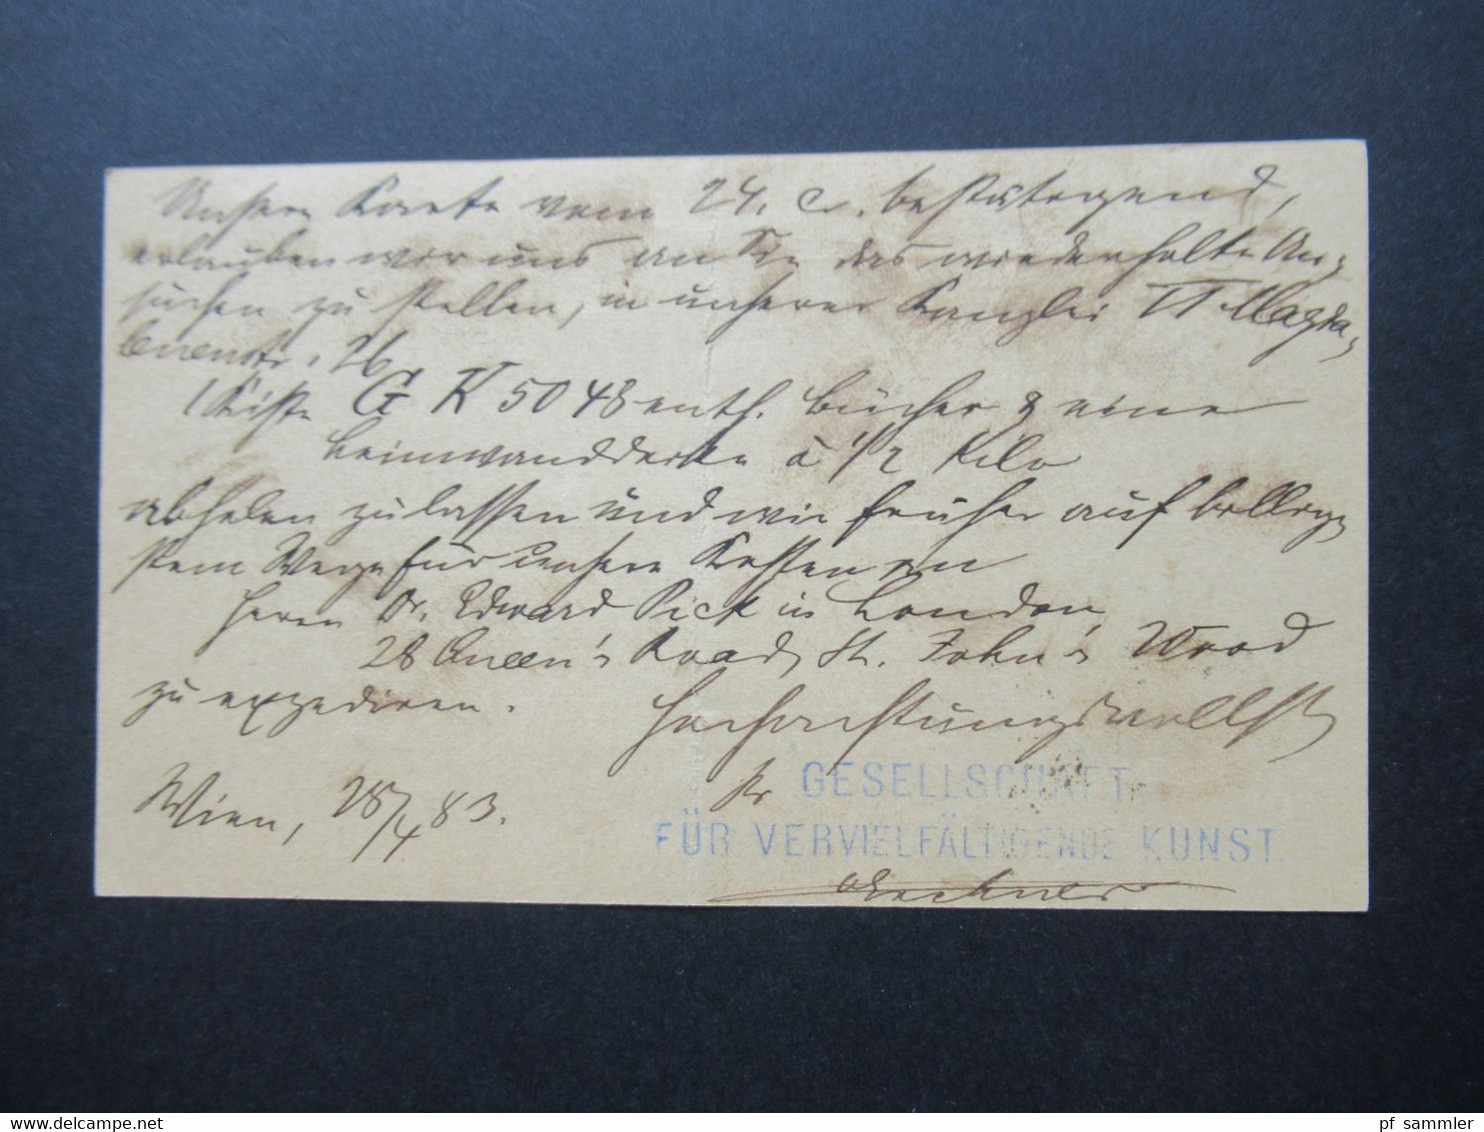 Unsere Karte vom 24. c. bestätigend,
erlauben wir uns an Sie das wiederholte An-
suchen zu stellen, in unserer Kanzlei VI Magda-
lenenstr. 26
1 Kiste G K 5048 enth. Bücher & eine
Leinwanddecke à 1/2 Kilo
abholen zu lassen und wie früher auf billig-
stem Wege für unsere Kosten an
Herrn Dr. Edward Pick in London,
28 Queen's Road, St. John's Wood
zu expediren.
Hochachtungsvollst
Wien, 28/4 83.
pr GESELLSCHAFT
FÜR VERVIELFÄLTIGENDE KUNST
pf sammler